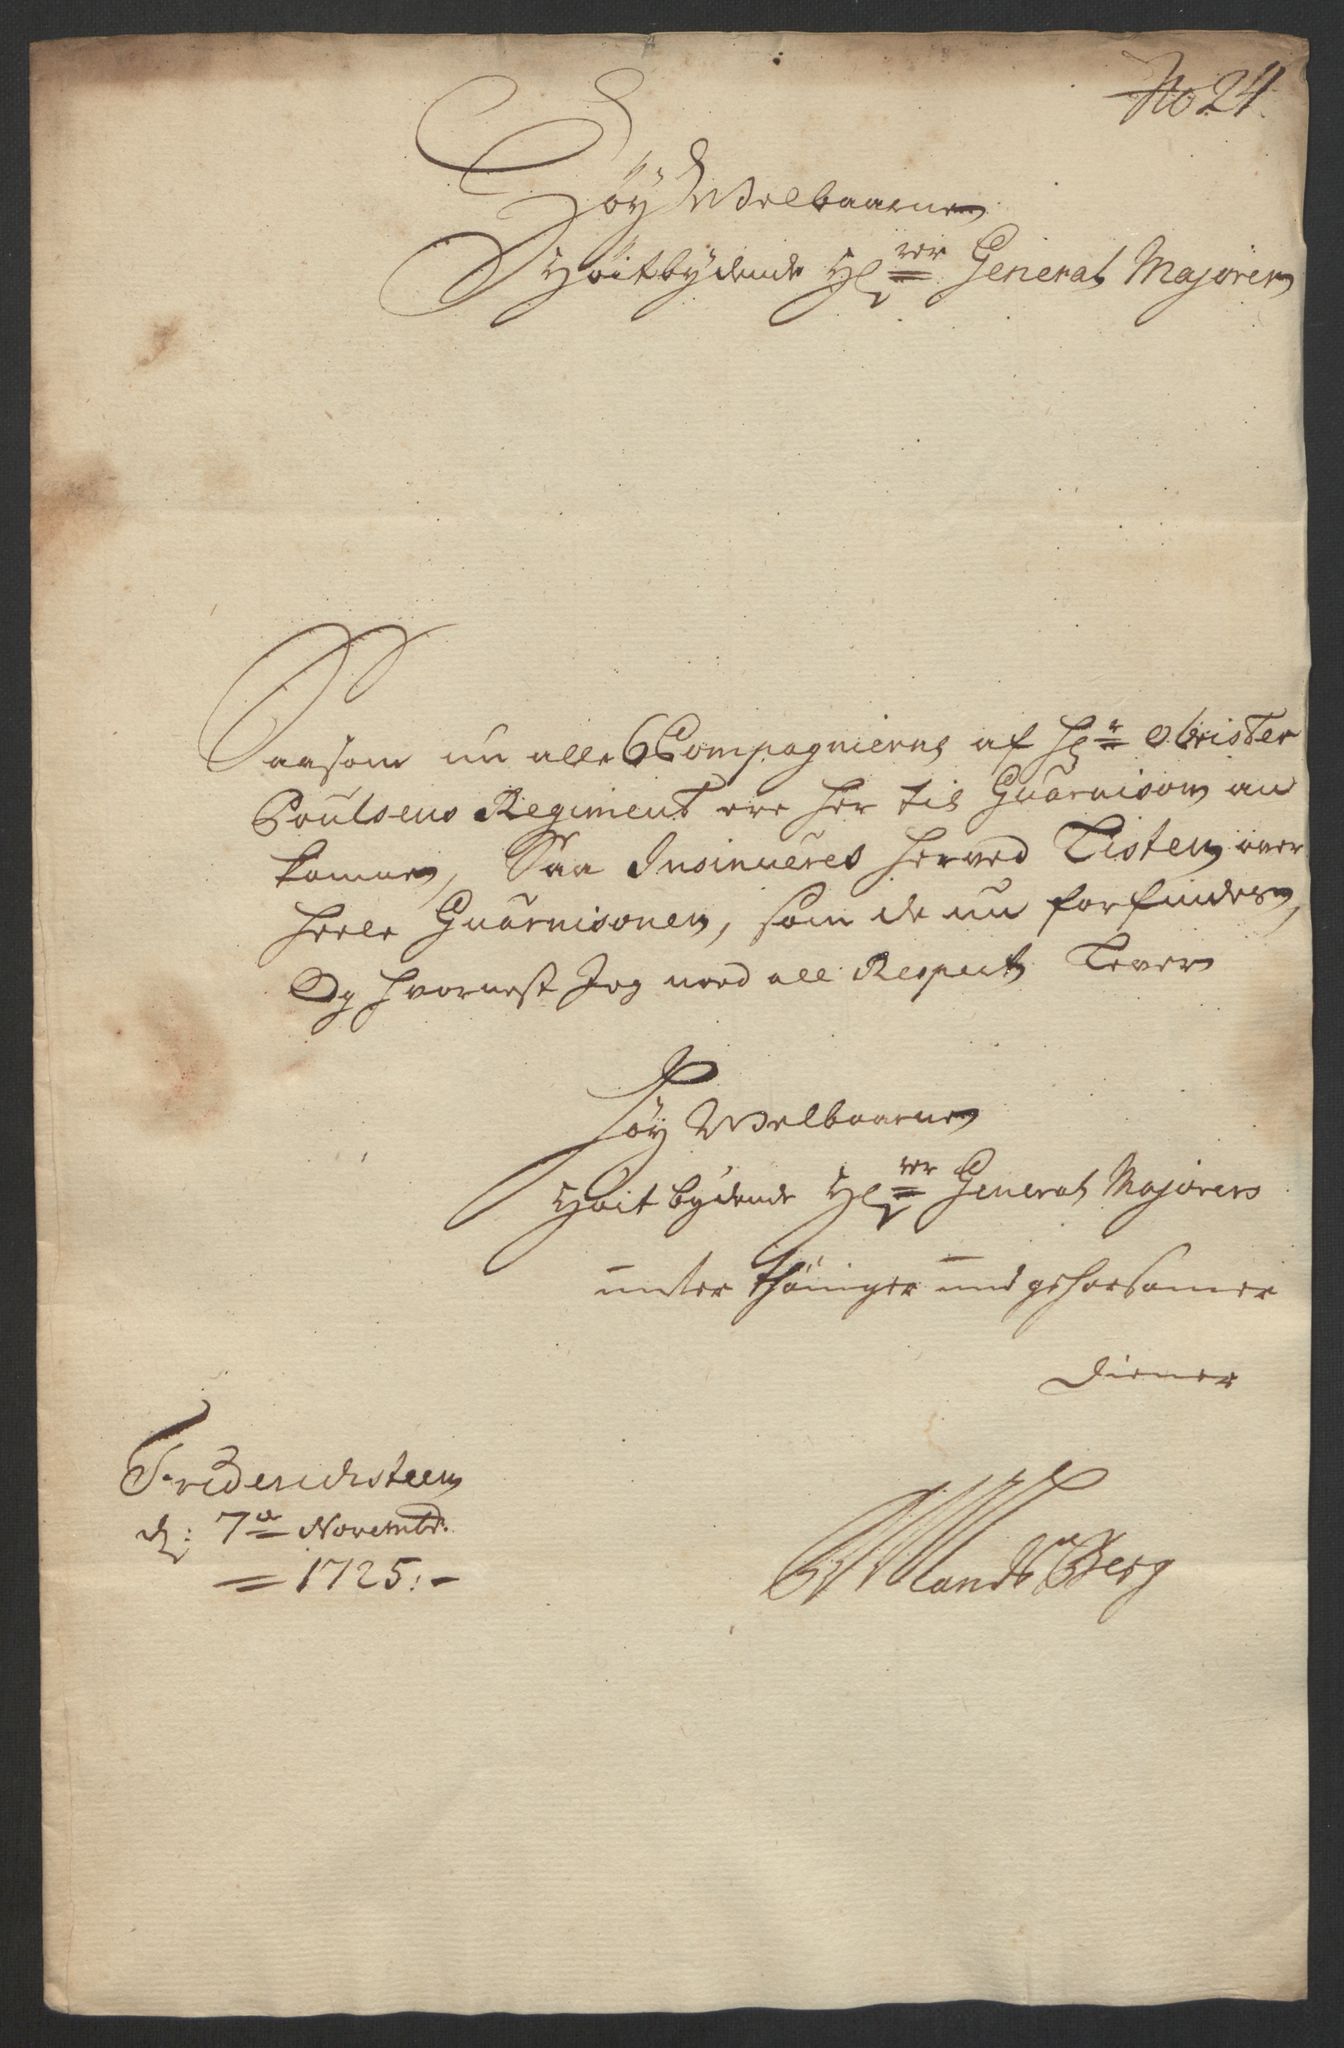 No 24.
Höy Welbaarne
Höitbydende Hr General Majoren
Saasom nu alle 6 Compagnierne af Hr Obrister
Poulsens Regiment ere her til Guarnison an
komne, Saa Insinueres herved Listen over
heele Guarnisonen, som de nu forfindes,
Og hvornest Jeg med all Respect lever
Höy Welbaarne
Höit bydende Hr General Majorens
unter thäniger und gehorsamer
Diener
Friderichsteen
d: 7de Novembr:
1725:
Landsberg